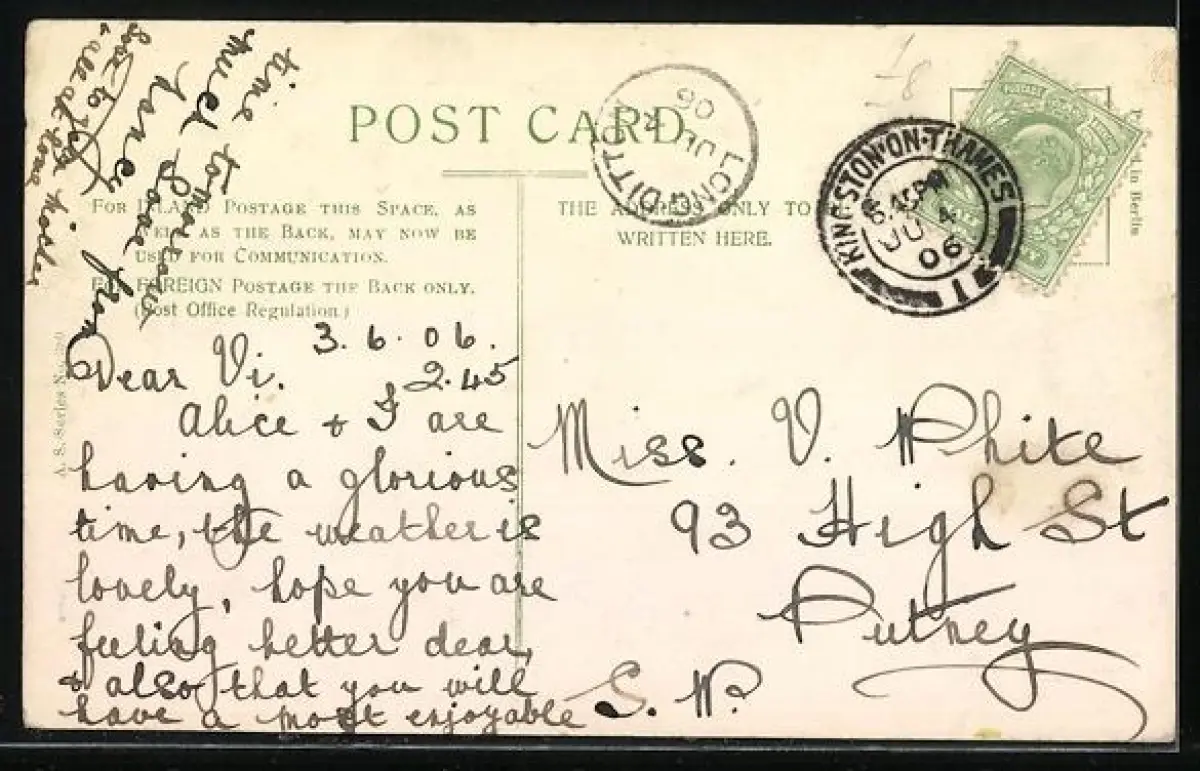 POST CARD
FOR INLAND POSTAGE THIS SPACE, AS
WELL AS THE BACK, MAY NOW BE
USED FOR COMMUNICATION.
FOR FOREIGN POSTAGE THE BACK ONLY.
(Post Office Regulation)
THE ADDRESS ONLY TO
WRITTEN HERE.
LONG DITTON
JU
06
KINGSTON-ON-THAMES
JU 4
06
21
in Berlin
A. S. Series
3.6.06.
2.45
Dear Vi.
Alice & I are
having a glorious
time, the weather is
lovely, hope you are
feeling better dear,
& also that you will
have a most enjoyable
time tomorrow
much love from
love to you
& all at
Miss. V. White
93 High St
Putney
S. W.